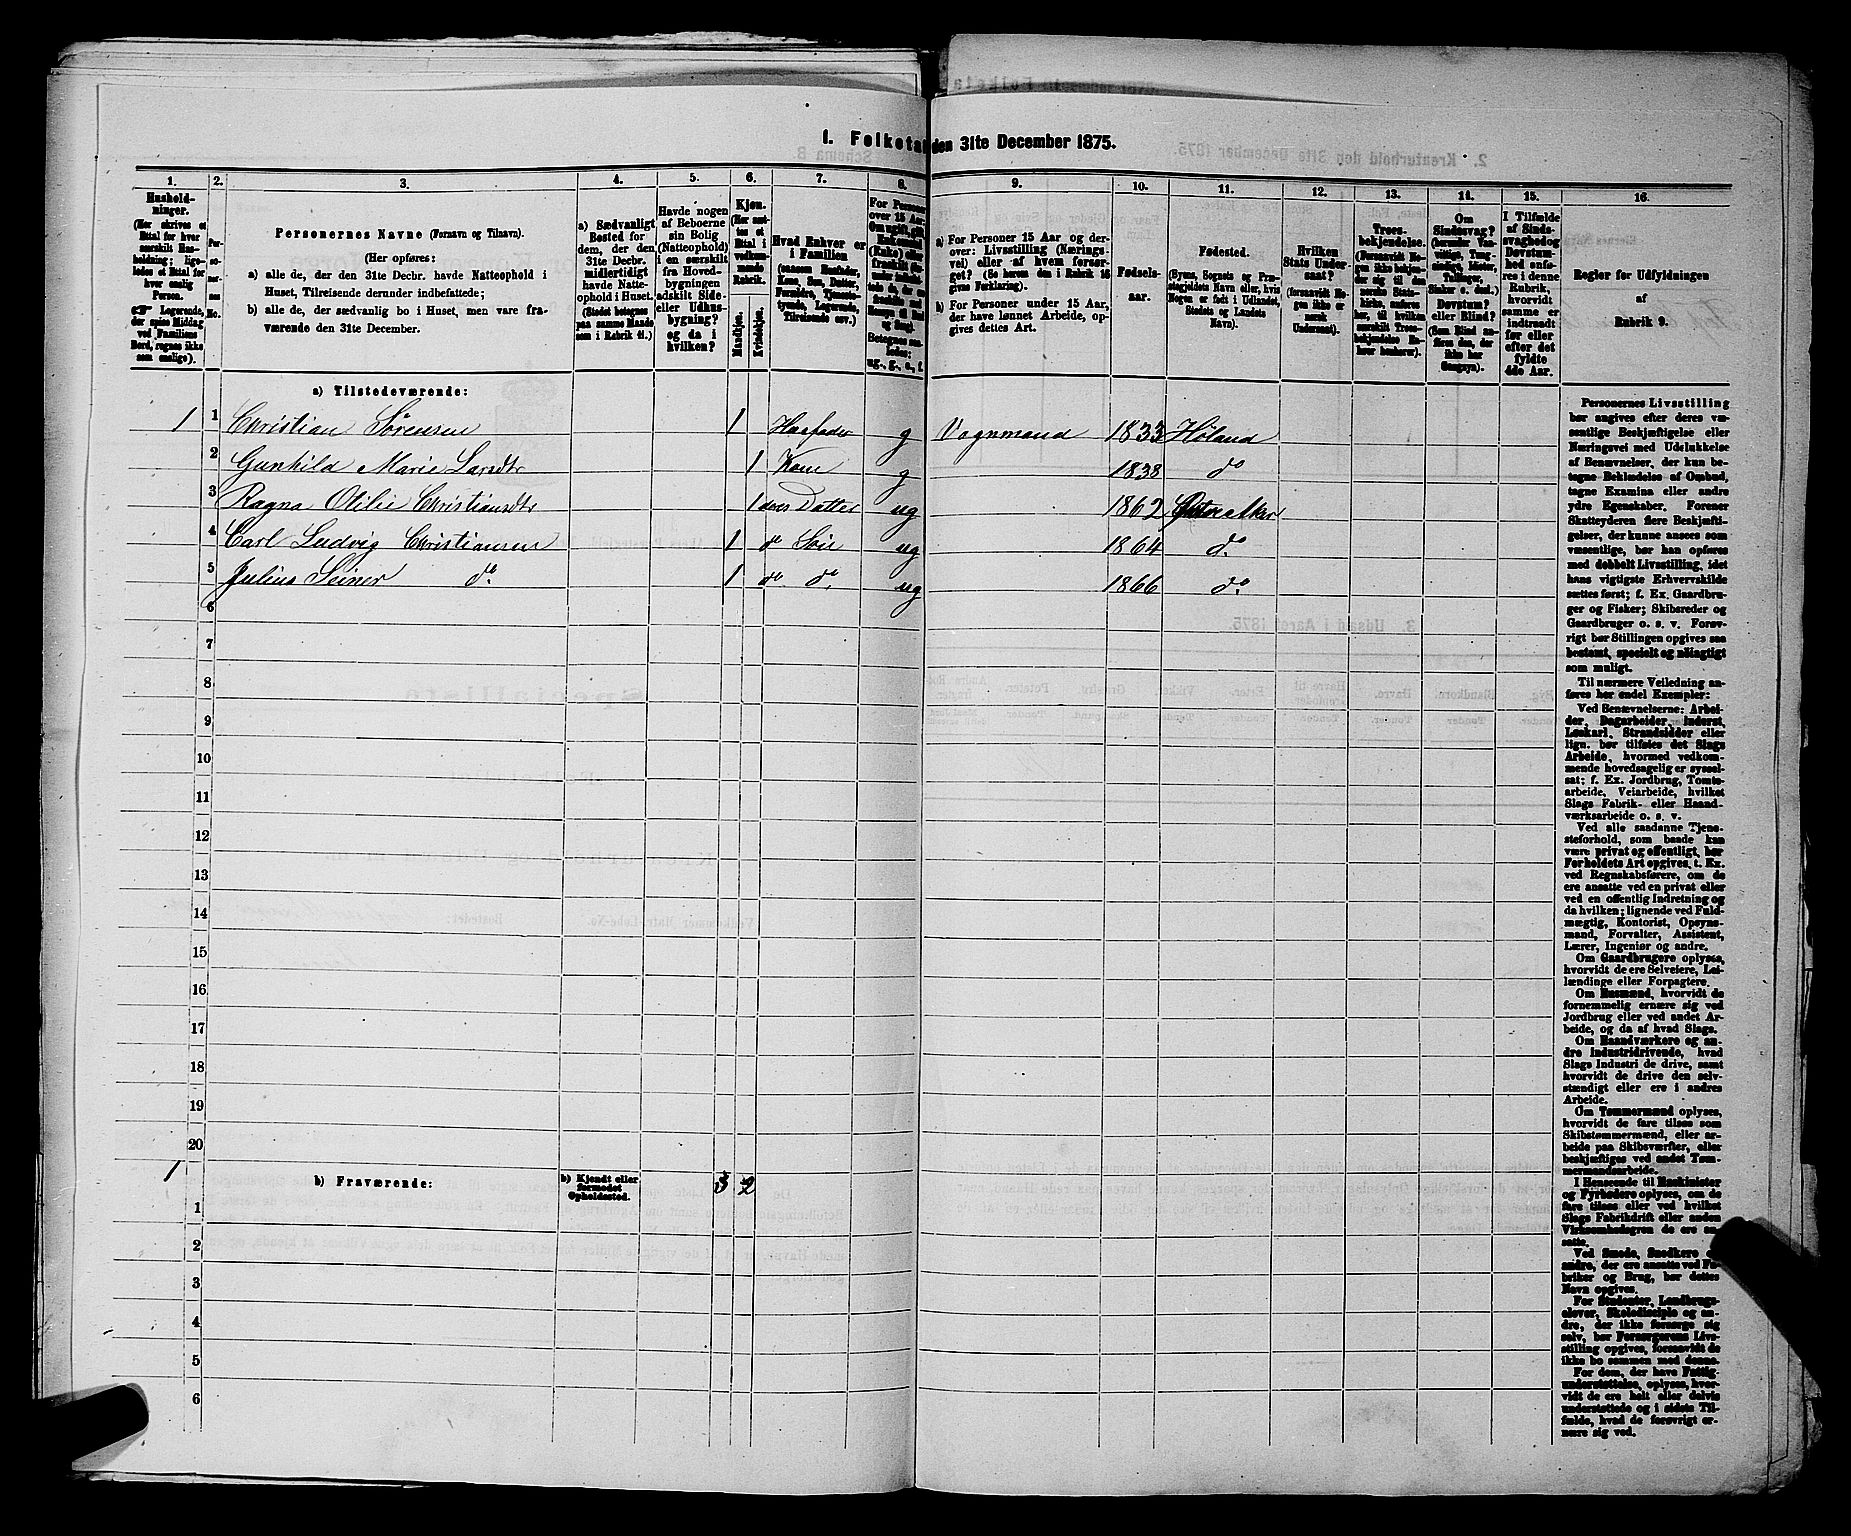 1. Folketæl den 31te December 1875.
1. 2. 3. 4. 5. 6. 7. 8. 9. 10. 11. 12. 13. 14. 15. 16.
Hushold-
ninger.
(Her skrives et
Ettal for hver
særskilt Hus-
holdning; lige-
ledes et Ettal for
hver enslig
Person.
Logerende,
der spise Middag
ved Familiens
Bord, regnes ikke
som enslige).
Per-
so-
ner-
nes
No.
Personernes Navne (Fornavn og Tilnavn).
(Her opføres:
a) alle de, der den 31te Decbr. havde Natteophold i
Huset, Tilreisende derunder indbefattede;
b) alle de, der sædvanlig bo i Huset, men vare fra-
værende den 31te December.
a) Sædvanligt
Bosted for
dem, der den
31te Decbr.
midlertidigt
havde Natte-
ophold i Huset.
(Stedet betegnes
paa samme Maade
som i Rubrik 11.)
Havde nogen
af Beboerne
sin Bolig
(Natteophold)
i en særskilt
fra Hoved-
bygningen
adskilt Side-
eller Udhus-
bygning?
og da i
hvilken?
Kjøn.
(Her sæt-
tes et
Ettal i
vedkom-
mende
Rubrik.
Mandkjøn.
Kvindekjøn.
Hvad Enhver er
i Familien
(saasom Husfader,
Kone, Søn, Datter,
Forældre, Tjeneste-
tyende, Logerende,
Tilreisende osv.)
For Personer
over 15 Aar:
Om ugift, gift,
Enkemand
(Enke) eller
fraskilt
ug., g., e., f.
a) For Personer 15 Aar og der-
over: Livsstilling (Nærings-
vei) eller af hvem forsør-
get? (Se herom den i Rubrik 16
givne Forklaring).
b) For Personer under 15 Aar,
der have lønnet Arbeide, op-
gives dettes Art.
Fødsels-
aar.
Fødested.
(Byens, Sognets og Præ-
stegjeldets Navn eller, hvis
Nogen er født i Udlandet,
Stedets og Landets
Navn).
Hvilken
Stats Under-
saat?
(forsaavidt No-
gen ikke er
norsk
Undersaat).
Troes-
bekjendelse.
(Forsaavidt No-
gen ikke bekjen-
der sig til den
norske Stats-
kirke, anføres
her, til hvilken
særskilt Troes-
bekjendelse En-
hver henhører).
Om
Sindssvag?
Døvstum?
eller Blind?
(Som Blind an-
føres den, der
ikke har
Gangsyn).
I Tilfælde
af Sinds-
svaghed og
Døvstum-
hed anfø-
res i denne
Rubrik,
hvorvidt
samme er
indtraadt
før eller
efter det
fyldte
4de Aar.
Regler for Udfyldningen
af
Rubrik 9.
a) Tilstedeværende:
1 1 Christian Sörensen 1 Husfader g Vognmand 1833 Höland
2 Gunhild Marie Larsdtr 1 Kone g 1838 do
3 Ragna Otilie Christiansdtr 1 deres Datter ug 1862 Aker
4 Carl Ludvig Christiansen 1 do Sön ug 1864 do
5 Julius Seiner do 1 do do ug 1866 do
6
7
8
9
10
11
12
13
14
15
16
17
18
19
20
1 b) Fraværende: b) Kjendt eller
formodet
Opholdssted. 3 2
1
2
3
4
5
6
Personernes Livsstilling
bør angives efter deres væ-
sentlige Beskjæftigelse eller
Næringsvei med Udelukkelse
af Benævnelser, der kun be-
tegne Beklædelse af Ombud,
tagne Examina eller andre
ydre Egenskaber. Forener
Skatteyderen flere Beskjæfti-
gelser, der kunne ansees som
væsentlige, bør han opføres
med dobbelt Livsstilling, idet
hans vigtigste Erhvervskilde
sættes først; f. Ex. Gaardbru-
ger og Fisker; Skibsreder og
Gaardbruger o. s. v. Forøv-
rigt bør Stillingen opgives saa
bestemt, specielt og nøiagtigt
som muligt.
Til nærmere Veiledning an-
føres her endel Exempler:
Ved Benævnelserne: Arbei-
der, Dagarbeider, Inderst,
Løskarl, Strandsidder eller
lign. bør tilføies det Slags
Arbeide, hvormed vedkom-
mende hovedsagelig er syssel-
sat; f. Ex. Jordbrug, Tomte-
arbeide, Veiarbeide, hvilket
Slags Fabrik- eller Haand-
værksarbeide o. s. v.
Ved alle saadanne Tjene-
steforhold, som baade kan
være privat og offentligt, bør
Forholdets Art opgives, t. Ex.
ved Regnskabsførere, om de
ere ansatte ved en privat eller
ved en offentlig Indretning og
da hvilken; lignende ved Fuld-
mægtig, Kontorist, Opsyns-
mand, Forvalter, Assistent,
Lærer, Ingeniør og andre.
Om Gaardbrugere oplyses,
hvorvidt de ere Selveiere, Lei-
lændinge eller Forpagtere.
Om Husmænd, hvorvidt de
fornemmelig ernære sig ved
Jordbrug eller ved andet Ar-
beide, og da af hvad Slags.
Om Haandværkere og an-
dre Industridrivende, hvad
Slags Industri de drive, samt
hvorvidt de drive den selv-
stændigt eller ere i andres
Arbeide.
Om Tømmermænd oplyses,
hvorvidt de fare tilsøs som
Skibstømmermænd, eller ar-
beide paa Skibsværfter, eller
beskjæftiges ved andet Tøm-
mermandsarbeide.
I Henseende til Maskinister
og Fyrbødere oplyses, om de
fare tilsøs eller ved hvilket
Slags Fabrikdrift eller anden
Virksomhedsgren de ere an-
satte.
Ved Smede, Snedkere og
andre, der ere ansatte ved Fa-
briker og Brug, bør dettes
Navn opgives.
For Studenter, Landbrugs-
elever, Skoledisciple og an-
dre, der ikke forsørge sig
selv, bør Forsørgerens Livs-
stilling opgives, forsaavidt de
ikke bo sammen med denne.
For dem, der have Fattig-
understøttelse, oplyses, hvor-
vidt de ere helt eller delvis
understøttede og i sidste Til-
fælde, hvad de forøvrigt er-
nære sig ved.